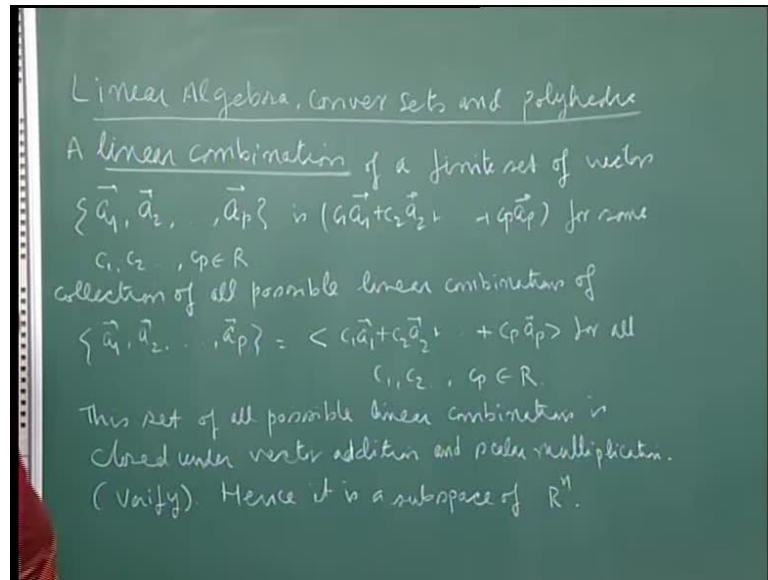 Linear Algebra, Convex sets and polyhedra
A linear combination of a finite set of vectors
{a⃗₁, a⃗₂, . . , a⃗ₚ} is (c₁a⃗₁+c₂a⃗₂+ +cₚa⃗ₚ) for some
c₁, c₂ . . , cₚ ∈ R
collection of all possible linear combinations of
{a⃗₁, a⃗₂, . . . , a⃗ₚ} = < c₁a⃗₁+c₂a⃗₂+ . . +cₚa⃗ₚ> for all
c₁, c₂ . , cₚ ∈ R.
This set of all possible linear combinations is
closed under vector addition and scalar multiplication.
(Verify). Hence it is a subspace of Rⁿ.